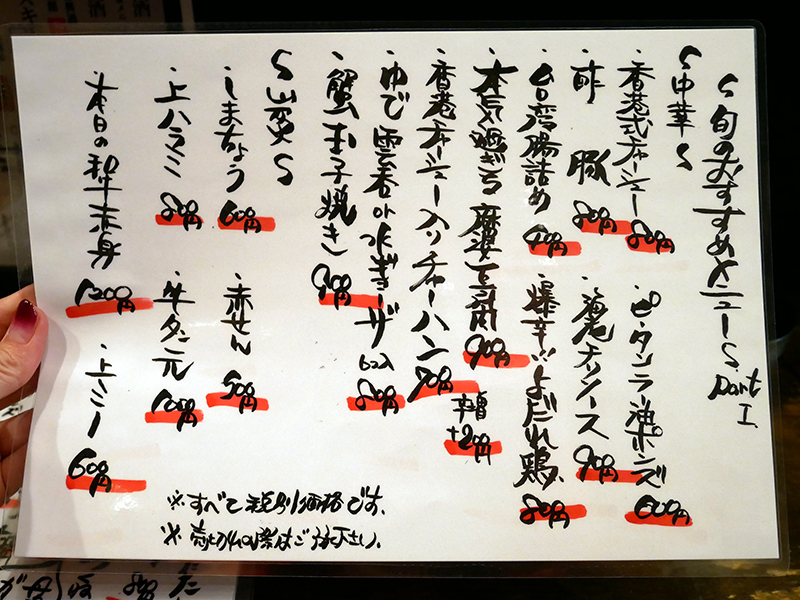 〜旬のおすすめメニュー〜 Part I
〜中華〜
・香港式チャーシュー 800円
・ピータンラー油ポンズ 600円
・酢豚 800円
・海老チリソース 900円
・台湾腸詰め 900円
・爆辛!!よだれ鶏 800円
・本気過ぎる麻婆豆腐 900円
辛増 +200円
・香港チャーシュー入りチャーハン 900円
・ゆで雲呑or水ギョーザ 6コ入 800円
・蟹玉子焼き 900円
〜炭〜
・しまちょう 600円
・赤せん 500円
・上ハラミ 800円
・牛タン元 1000円
・本日の和牛赤身 1200円
・上ミノ 600円
※すべて税別価格です。
※売切れの際はご容赦下さい。